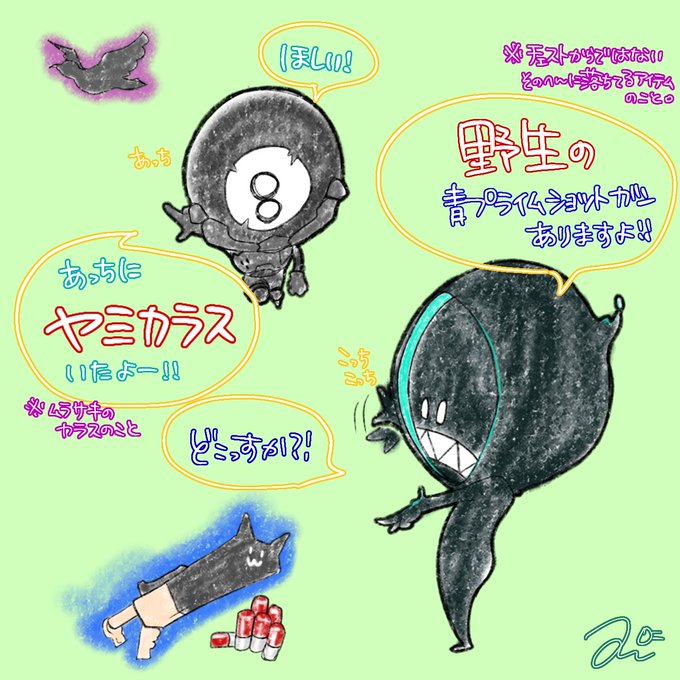 ほしい!
※チェストからではない
そのへ〜んに落ちてるアイテム
のこと。
8
あっち
野生の
青プライムショットガン
ありますよ!!
あっちに
ヤミカラス
いたよー!!
※ムラサキの
カラスのこと
こっち
こっち
どこっすか?!